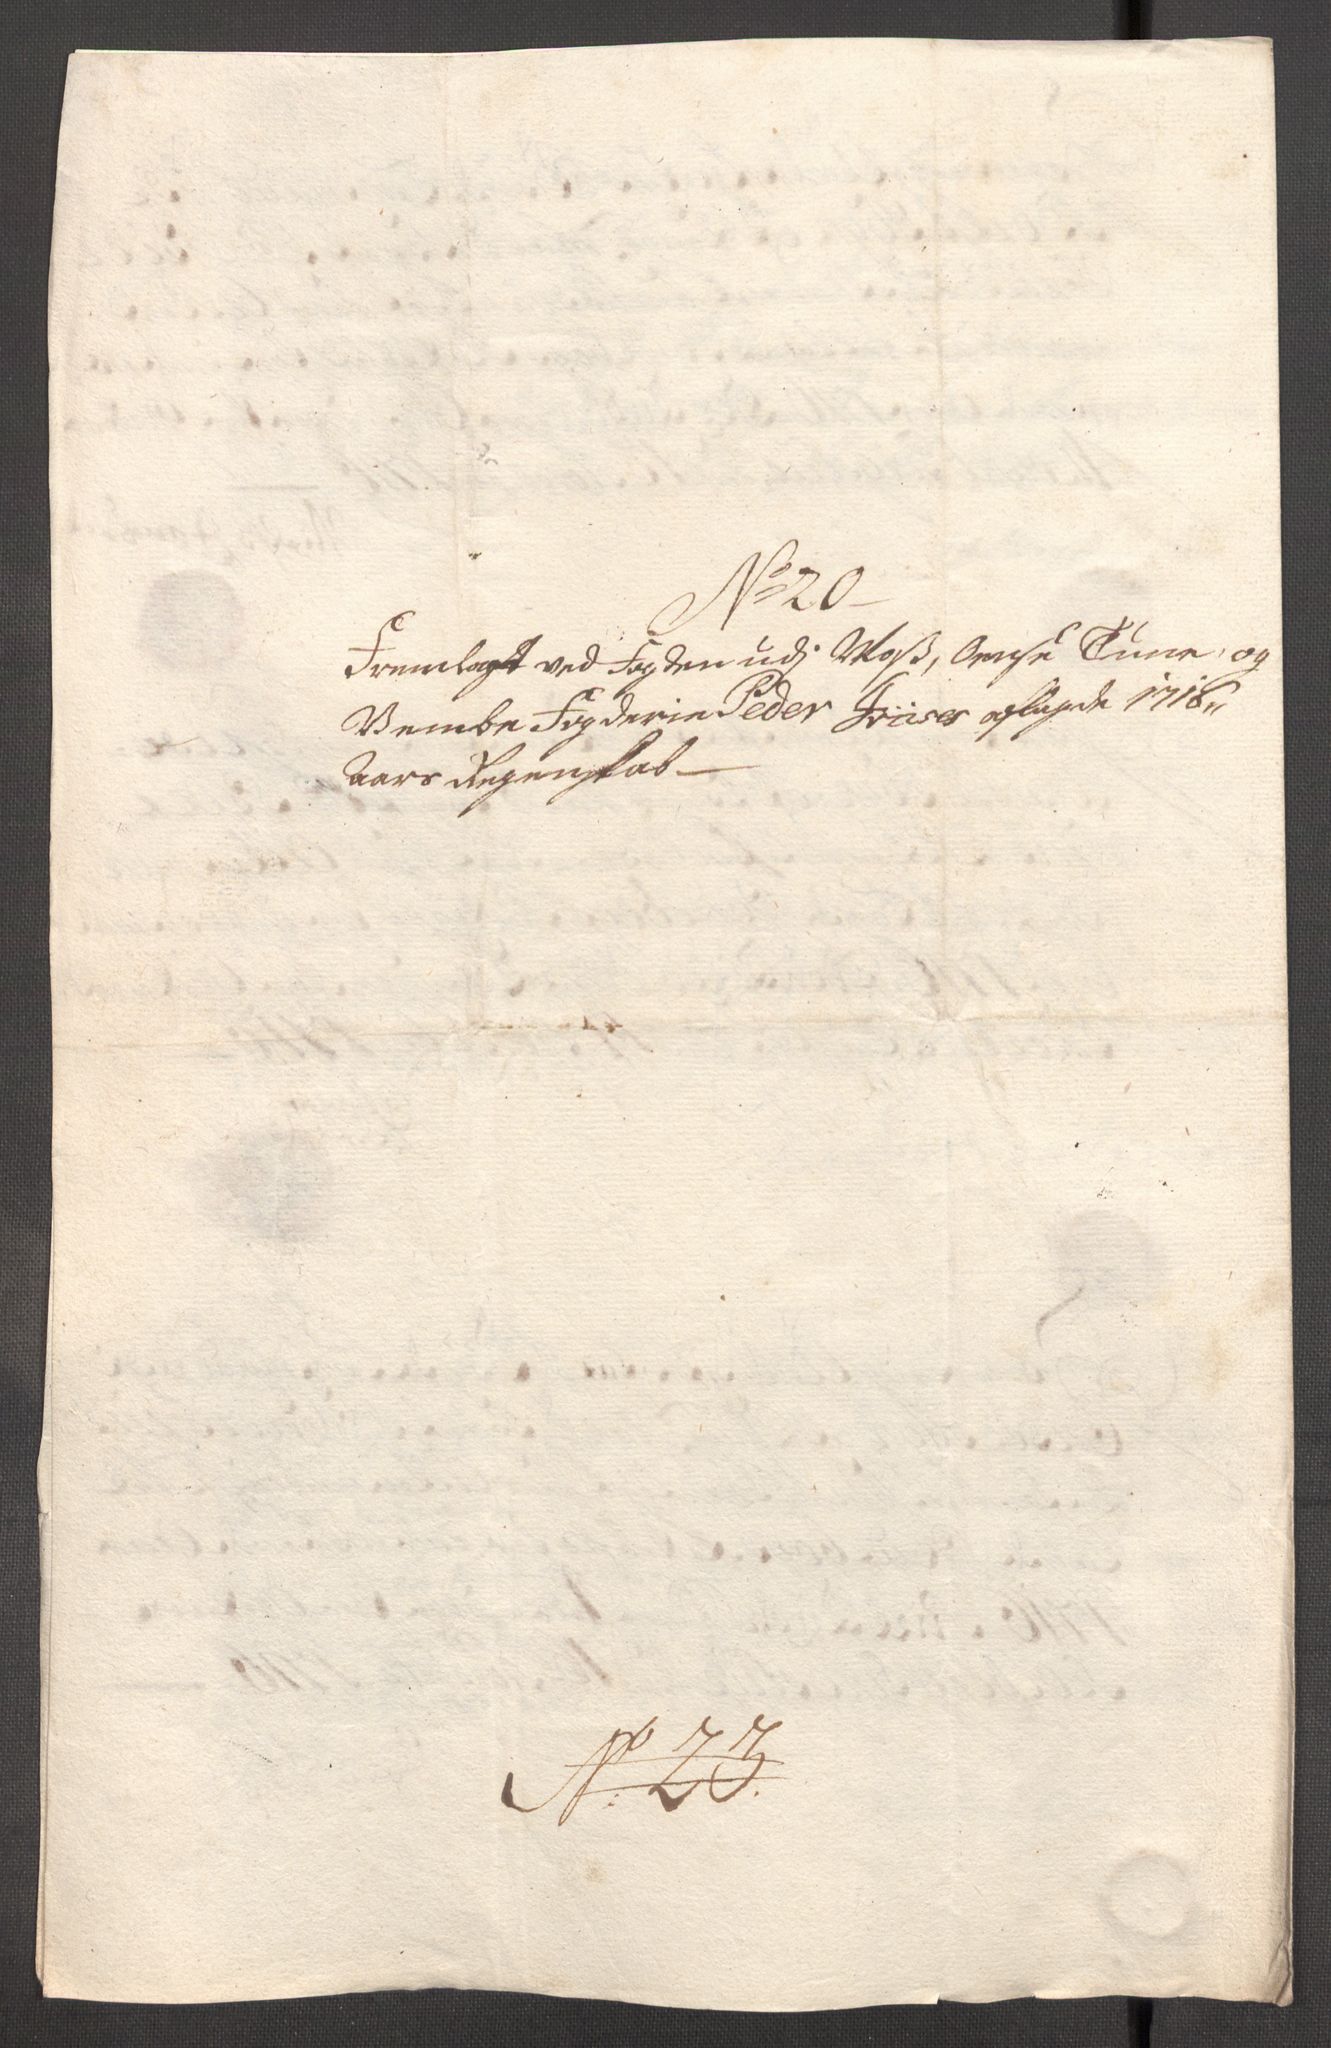 No 20
Fremlagt ved Fogden udj Moß, Onsøe Tune, og
Vembe Fogderie Peder aflagde 1716
Aars Regenskab
No 23.